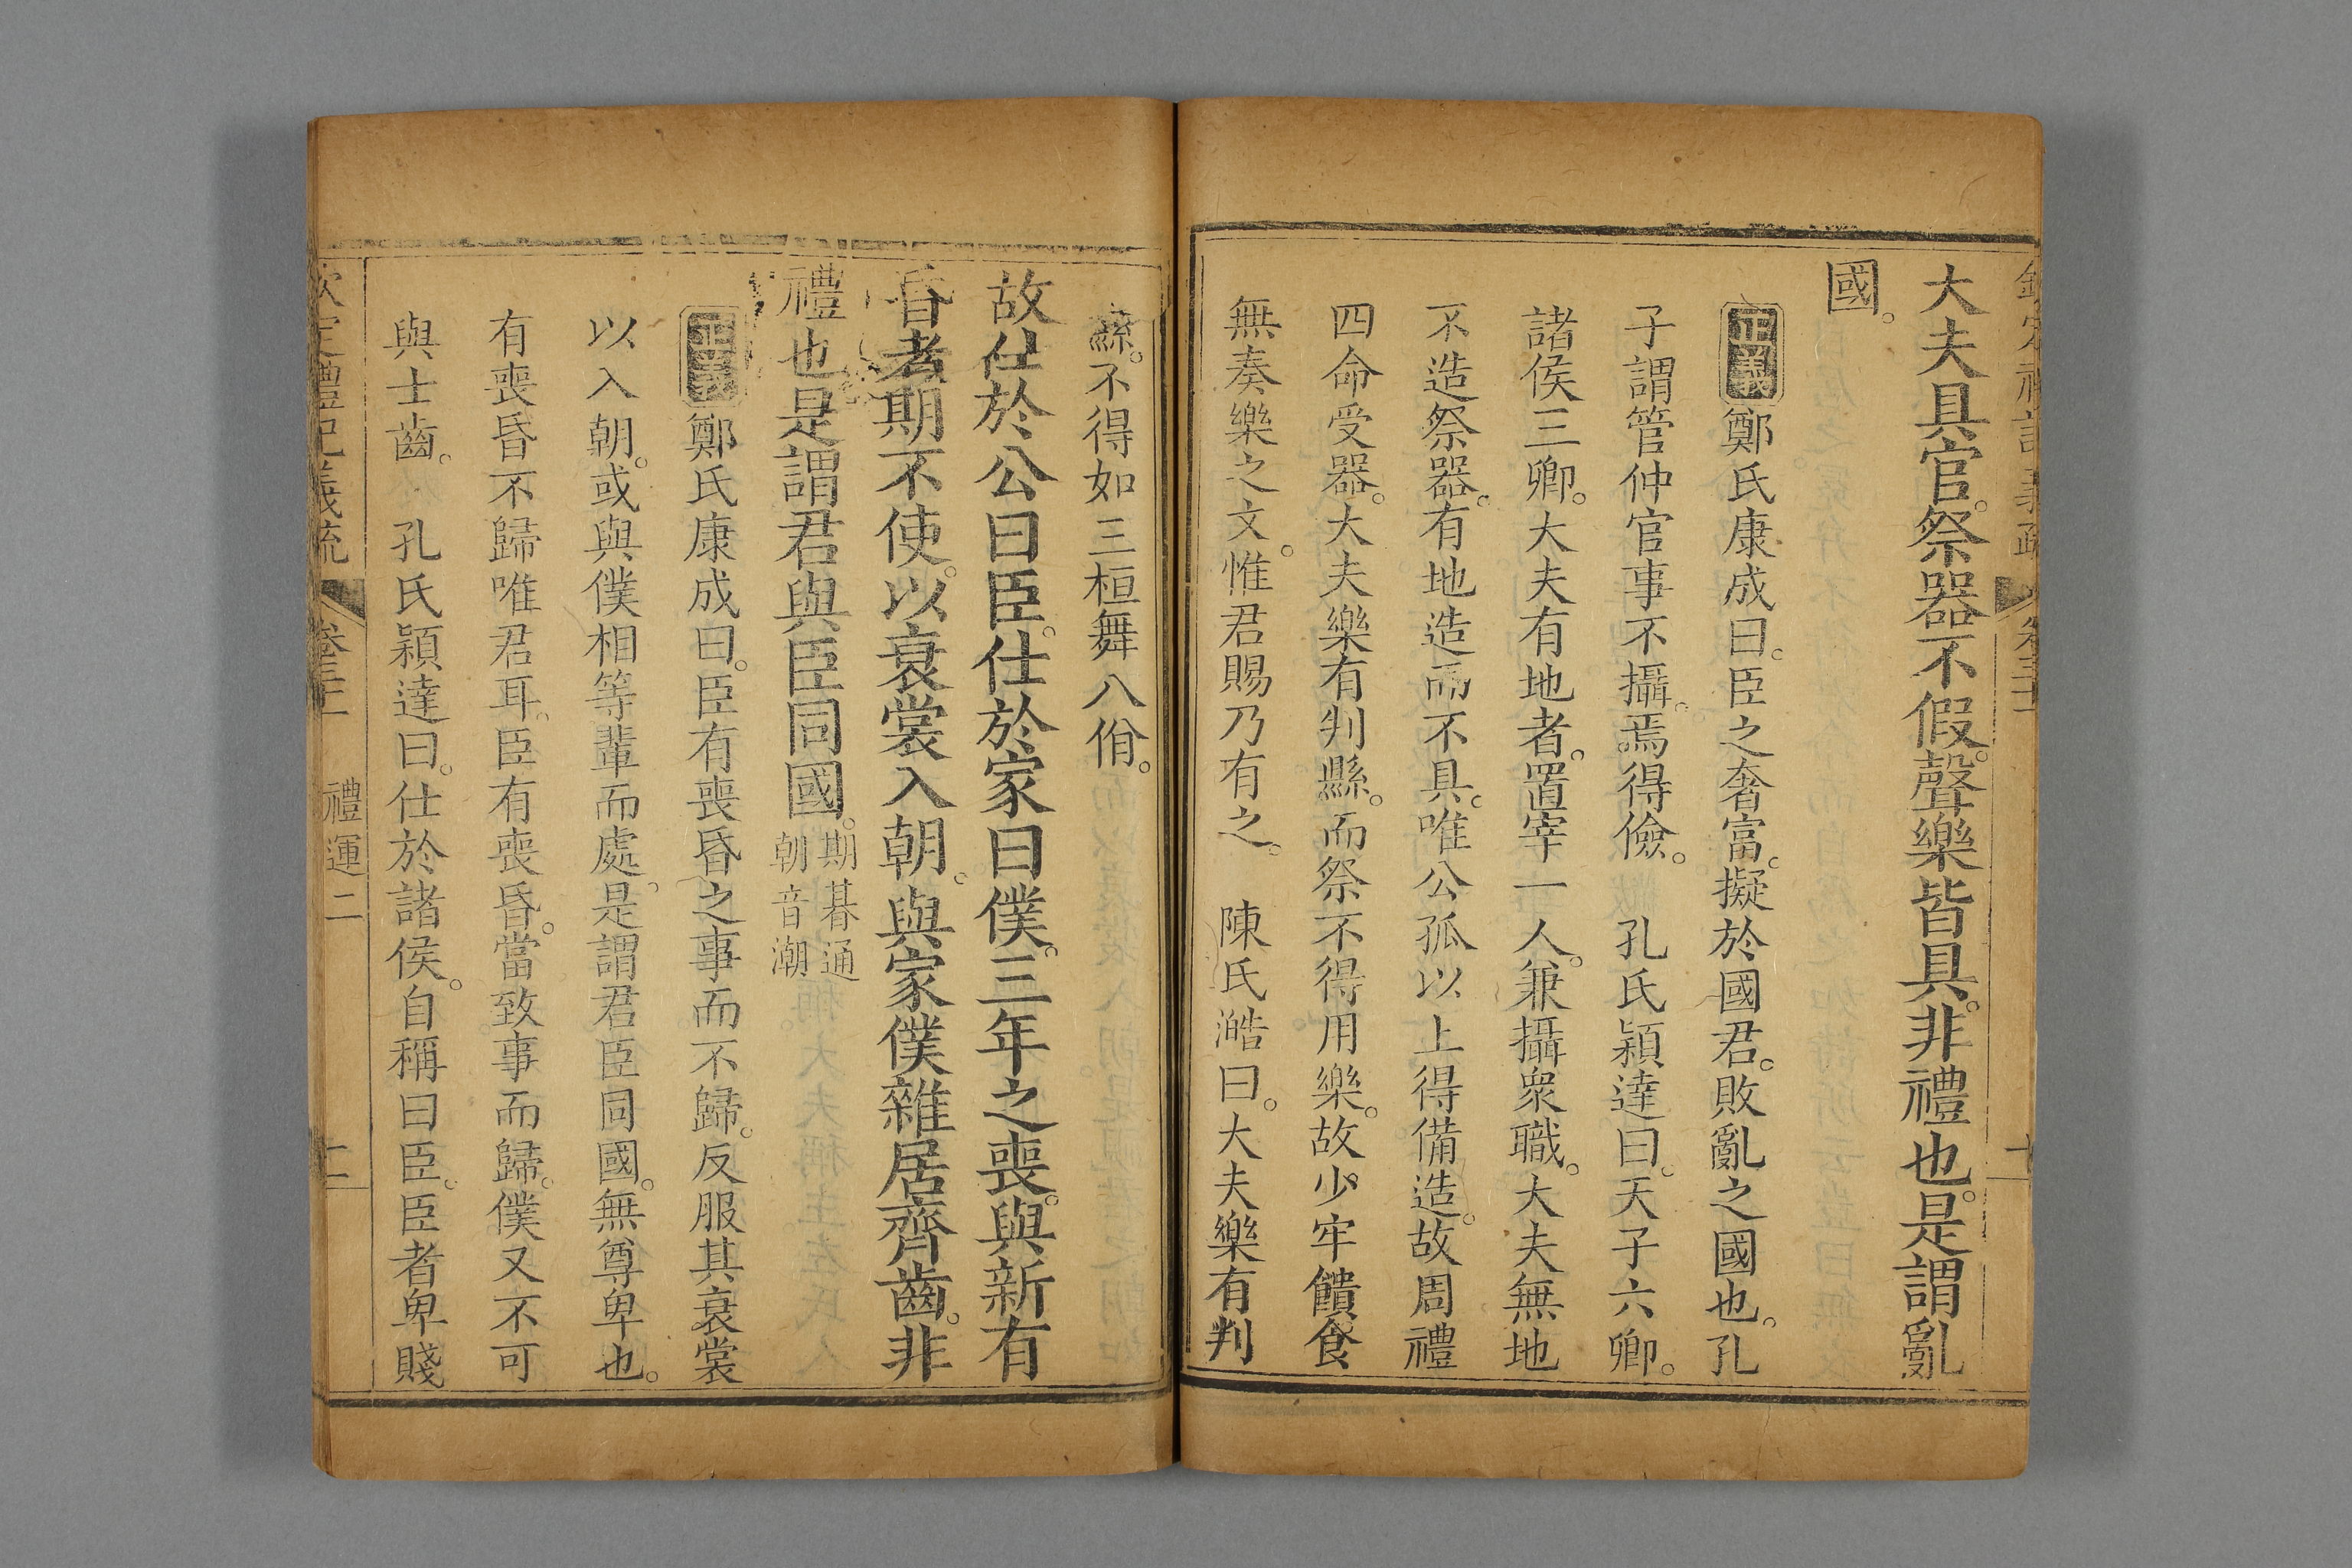 大夫具官。祭器不假。聲樂皆具。非禮也。是謂亂
國。
正義鄭氏康成曰。臣之奢富。擬於國君。敗亂之國也。孔
子謂管仲官事不攝。焉得儉。　孔氏穎達曰。天子六卿。
諸侯三卿。大夫有地者。置宰一人。兼攝衆職。大夫無地
不造祭器。有地造而不具。唯公孤以上得備造。故周禮
四命受器。大夫樂有判縣。而祭不得用樂。故少牢饋食
無奏樂之文。惟君賜乃有之。　陳氏澔曰。大夫樂有判
縣。不得如三桓舞八佾。
故仕於公曰臣。仕於家曰僕。三年之喪。與新有
昏者期不使。以衰裳入朝。與家僕雜居齊齒。非
禮也是謂君與臣同國。期朞通
朝音潮
正義鄭氏康成曰。臣有喪昏之事而不歸。反服其衰裳
以入朝。或與僕相等輩而處。是謂君臣同國。無尊卑也。
有喪昏不歸唯君耳。臣有喪昏。當致事而歸。僕又不可
與士齒。　孔氏穎達曰。仕於諸侯。自稱曰臣。臣者卑賤
欽定禮記義疏　卷三十一　禮運二